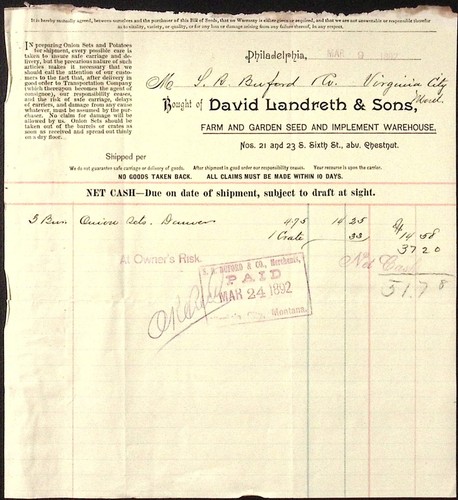 It is hereby mutually agreed, between ourselves and the purchaser of this Bill of Seeds, that no Warranty is either given or required, and that we are not answerable or responsible
in to vitality, variety, or quality, or for any loss or damage arising from any failure thereof, in any respect.
IN preparing Onion Sets and Potatoes
for shipment, every possible care is
taken to insure safe carriage and de-
livery, but the precarious nature of such
articles makes it necessary that we
should call the attention of our custom-
ers to the fact that, after delivery in
good order to Transportation Company
(which thereupon becomes the agent of
consignee), our responsibility ceases,
and the risk of safe carriage, delays
of carriers, and damage from any cause
whatever, must be assumed by the pur-
chaser. No claim for damage will be
allowed by us. Onion Sets should be
taken out of the barrels or crates as
soon as received and spread out thinly
on a dry floor.
Philadelphia, MAR 9
M S. R. Buford & Co. Virginia City
Mont.
Bought of David Landreth & Sons,
FARM AND GARDEN SEED AND IMPLEMENT WAREHOUSE,
Nos. 21 and 23 S. Sixth St., abv. Chestnut.
Shipped per
We do not guarantee safe carriage or delivery of goods. After shipment in good order our responsibility ceases. Your recourse is upon the carrier.
NO GOODS TAKEN BACK. ALL CLAIMS MUST BE MADE WITHIN 10 DAYS.
NET CASH—Due on date of shipment, subject to draft at sight.
3 Bus Onion Sets. Danvers 4.75 14 25
1 Crate 33 14 58
37 20
At Owner's Risk. Net Cash
51.78
S. R. BUFORD & CO., Merchants,
PAID
MAR 24 1892
Montana.